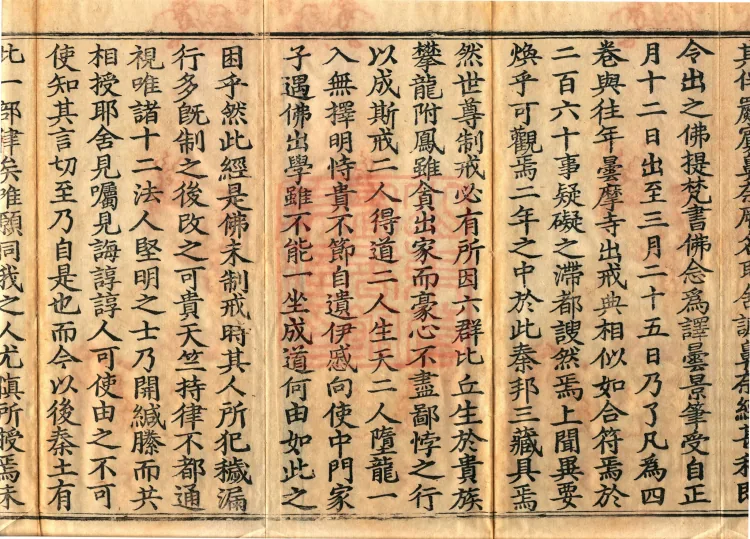 令出之佛提梵書佛念爲譯曇景筆受自正
月十二日出至三月二十五日乃了凡爲四
卷與往年曇摩寺出戒典相似如合符焉於
二百六十事疑礙之滯都謏然焉上聞異要
煥乎可觀焉二年之中於此秦邦三藏具焉
然世尊制戒必有所因六群比丘生於貴族
攀龍附鳳雖貪出家而豪心不盡鄙悖之行
以成斯戒二人得道二人生天二人墮龍一
入無擇明恃貴不節自遺伊慼向使中門家
子遇佛出學雖不能一坐成道何由如此之
困乎然此經是佛未制戒時其人所犯穢漏
行多旣制之後改之可貴天竺持律不都通
視唯諸十二法人堅明之士乃開緘縢而共
相授耶舍見囑見誨諄諄人可使由之不可
使知其言切至乃自是也而今以後秦土有
此一部律矣唯願同我之人尤慎所授焉未